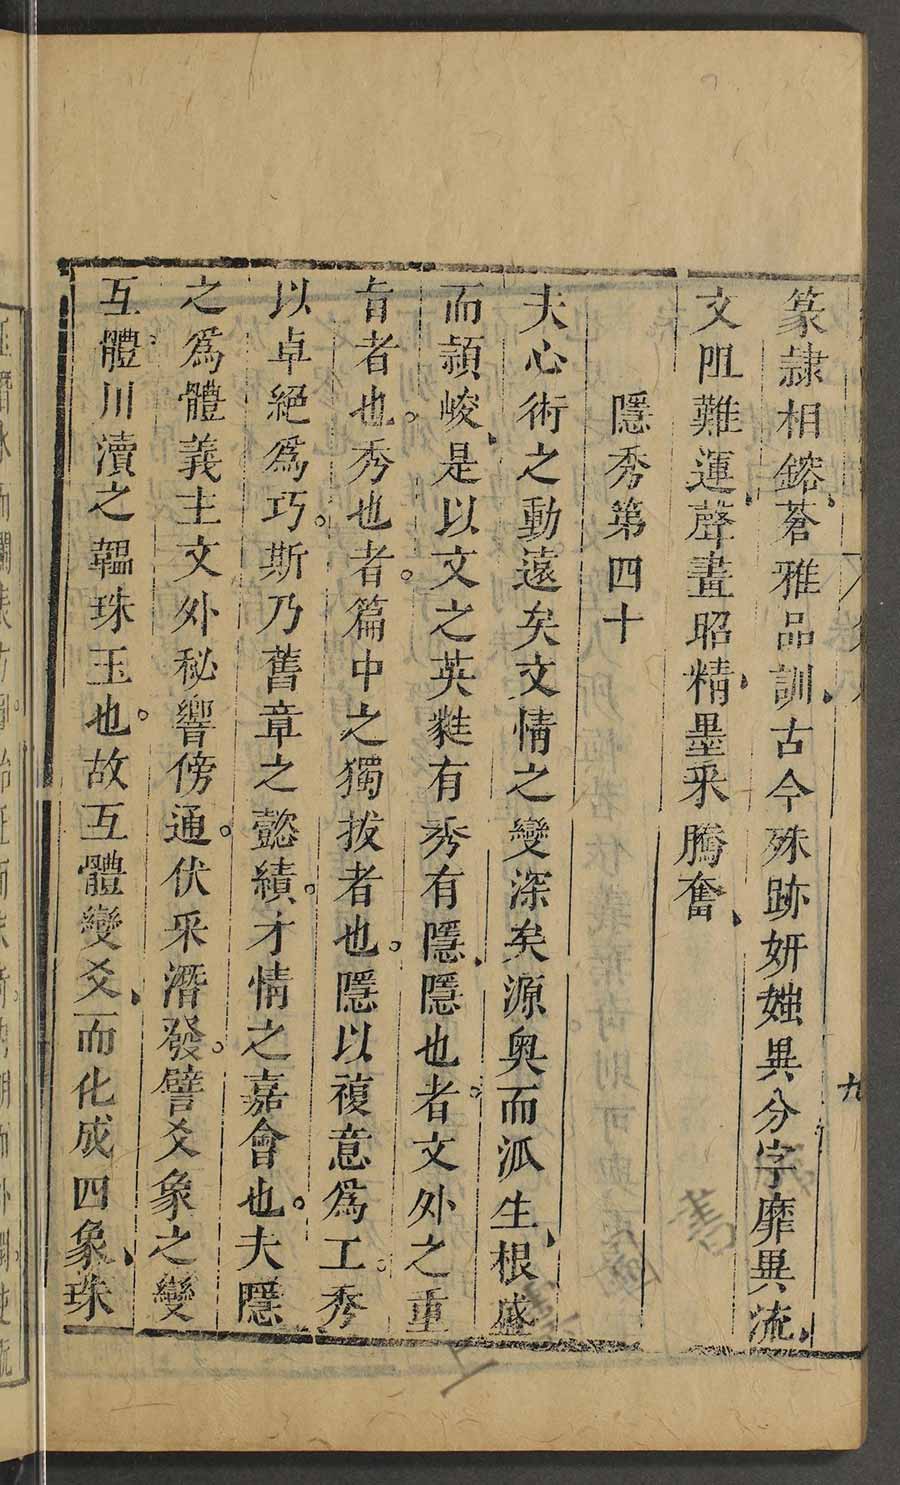 篆隷相鎔、蒼雅品訓、古今殊跡妍媸異分字靡異流、
文阻難運、聲畫昭精、墨采騰奮、
隱秀第四十
夫心術之動遠矣文情之變深矣源奥而派生、根盛
而頴峻、是以文之英蕤有秀有隱、隱也者。文外之重
旨者也。秀也者。篇中之獨拔者也。隱以複意爲工。秀
以卓絕爲巧。斯乃舊章之懿績。才情之嘉會也。夫隱
之爲體義主文外秘響傍通。伏采潛發。譬爻象之變
互體、川瀆之韞珠玉也。故互體變爻、而化成四象、珠
九